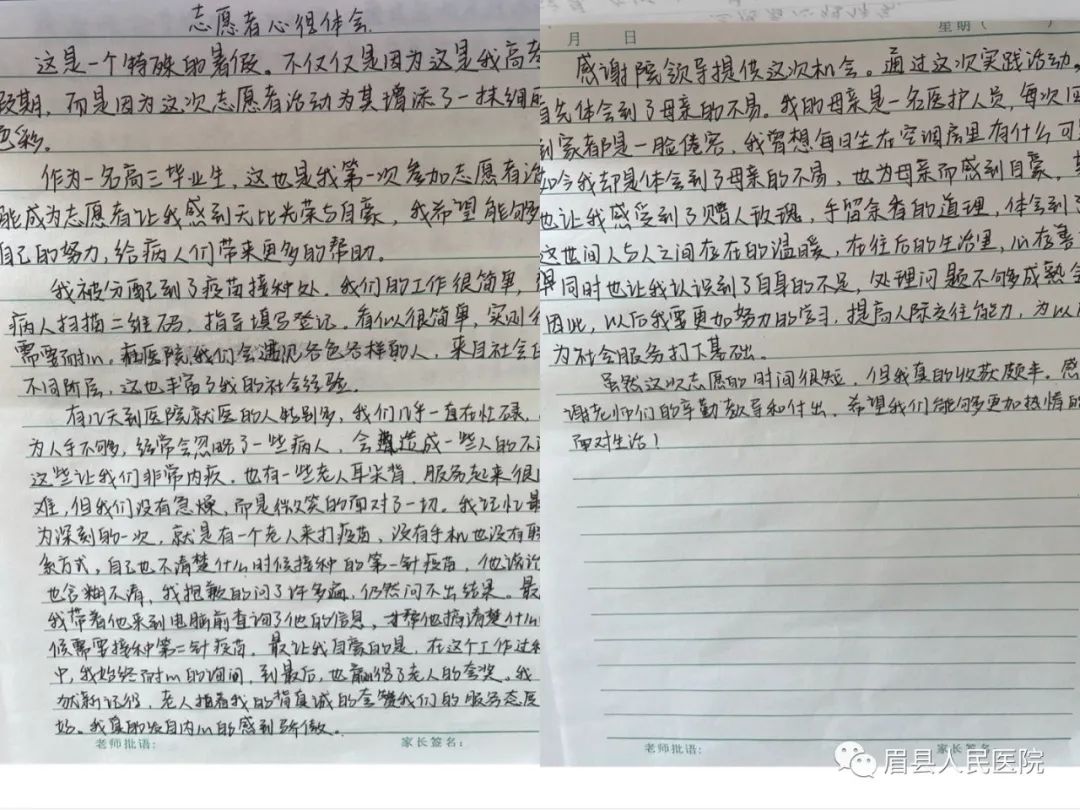 志愿者心得体会
这是一个特殊的暑假。不仅仅是因为这是我高考
假期，而是因为这次志愿者活动为其增添了一抹绚丽
色彩。
作为一名高三毕业生，这也是我第一次参加志愿者活
能成为志愿者让我感到无比光荣与自豪，我希望能够
自己的努力，给病人们带来更多的帮助。
我被分配到了疫苗接种处。我们的工作很简单，
病人扫描二维码，指导填写登记。看似很简单，实则
需要耐心，在医院我们会遇见各色各样的人，来自社会
不同阶层，这也丰富了我的社会经验。
有几天到医院就医的人特别多，我们几乎一直在忙碌，
为人手不够，经常会忽略了一些病人，会造成一些人的不
这些让我们非常内疚。也有一些老人耳朵背，服务起来很
难，但我们没有急燥，而是微笑的面对了一切。我记忆最
为深刻的一次，就是有一个老人来打疫苗，没有手机也没有联
系方式，自己也不清楚什么时候接种的第一针疫苗，他说话
也含糊不清，我抱歉的问了许多遍，仍然问不出结果。最
我带着他来到电脑前查询了他的信息，才帮他搞清楚什么
候需要接种第二针疫苗。最让我自豪的是，在这个工作过程
中，我始终耐心的询问，到最后，也赢得了老人的夸奖。我
然记得，老人拍着我的背真诚的夸赞我们的服务态度
好。我真的发自内心的感到骄傲。
老师批语:
家长签名:
月 日
星期（ ）
感谢院领导提供这次机会。通过这次实践活动，
首先体会到了母亲的不易。我的母亲是一名医护人员，每次回
到家都是一脸倦容，我曾想每日坐在空调房里有什么可
如今我却是体会到了母亲的不易，也为母亲而感到自豪，
也让我感受到了赠人玫瑰，手留余香的道理，体会到
这世间人与人之间存在的温暖，在往后的生活里，心存善
同时也让我认识到了自身的不足，处理问题不够成熟
因此，以后我要更加努力的学习，提高人际交往能力，为以
为社会服务打下基础。
虽然这次志愿的时间很短，但我真的收获颇丰。感
谢老师们的辛勤教导和付出，希望我们能够更加热情的
面对生活！
老师批语:
家长签名
眉县人民医院